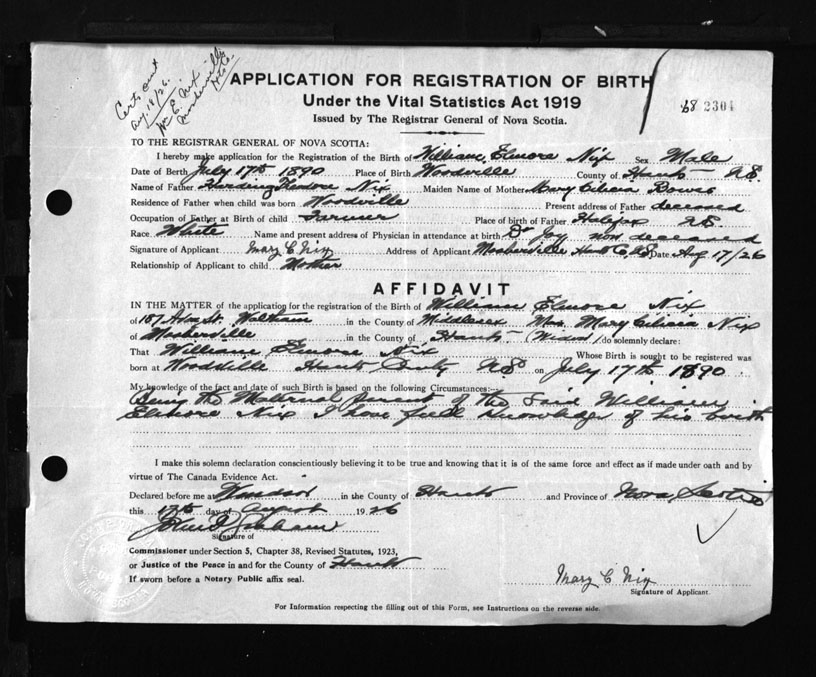 Certs out
Aug. 18/26.
Wm E. Nix
Mosherville
Hts Co.
APPLICATION FOR REGISTRATION OF BIRTH
Under the Vital Statistics Act 1919
Issued by The Registrar General of Nova Scotia.
68 2304
TO THE REGISTRAR GENERAL OF NOVA SCOTIA:
I hereby make application for the Registration of the Birth of William Elmore Nix Sex Male
Date of Birth July 17th 1890 Place of Birth Woodville County of Hants N.S.
Name of Father Harding Theodore Nix Maiden Name of Mother Mary Cilicia Bower
Residence of Father when child was born Woodville Present address of Father deceased
Occupation of Father at Birth of child Farmer Place of birth of Father Halifax N.S.
Race White Name and present address of Physician in attendance at birth Dr now deceased
Signature of Applicant Mary C Nix Address of Applicant Mosherville Hants Co N.S Date Aug 17/26
Relationship of Applicant to child Mother
AFFIDAVIT
IN THE MATTER of the application for the registration of the Birth of William Elmore Nix
of 187 St. Waltham in the County of Middlesex Mrs. Mary Cilicia Nix
of Mosherville in the County of Hants (Widow) do solemnly declare:
That William Elmore Nix Whose Birth is sought to be registered was
born at Woodville Hants County N.S. on July 17th 1890
My knowledge of the fact and date of such Birth is based on the following Circumstances:-
Being the Maternal parent of the Said William
Elmore Nix I have full knowledge of his birth
I make this solemn declaration conscientiously believing it to be true and knowing that it is of the same force and effect as if made under oath and by
virtue of The Canada Evidence Act.
Declared before me at Windsor in the County of Hants and Province of Nova Scotia
this 17th day of August 1926
John Graham
Signature of
Commissioner under Section 5, Chapter 38, Revised Statutes, 1923,
or Justice of the Peace in and for the County of Hants
If sworn before a Notary Public affix seal.
Mary C Nix
Signature of Applicant.
For Information respecting the filling out of this Form, see Instructions on the reverse side.